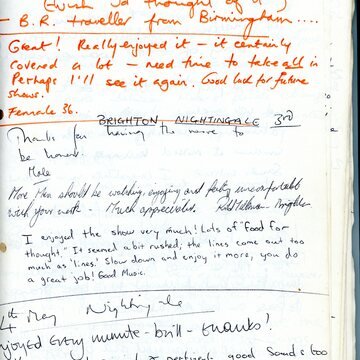 (Wish I'd thought of it)
- B.R. traveller from Birmingham.....
Great! Really enjoyed it - it certainly
covered a lot - need time to take all in
Perhaps I'll see it again. Good luck for future
shows.
Female 36.
BRIGHTON NIGHTINGALE 3rd
Thanks for having the nerve to
be honest.
Male
More Men should be watching, enjoying and feeling uncomfortable
with your work - Much appreciated. Brighton
I enjoyed the show very much! Lots of "food for
thought". It seemed a bit rushed; the lines came out too
much as 'lines'. Slow down and enjoy it more, you do
a great job! Good Music.
4th May Nightingale
enjoyed every minute - brill - thanks!
good Sounds too